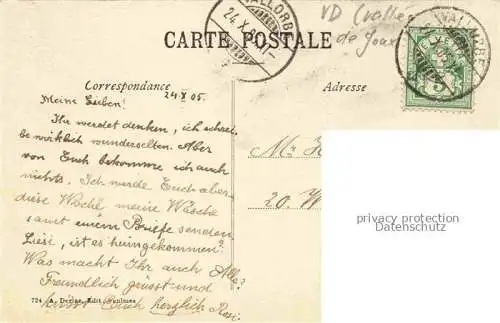 VALLORBE
24 X
VD (vallée
de Joux
CARTE POSTALE
VALLORBE
HELVETIA
5
Correspondance
Adresse
24 X 05.
Meine Lieben!
Ihr werdet denken, ich schrei-
be wirklich wunderselten. Aber
von Euch bekomme ich auch
nichts. Ich werde Euch aber
diese Woche meine Wäsche
samt einem Briefe senden.
Liesi, ist es heimgekommen?
Was macht Ihr auch Alle?
Freundlich grüsst und
küsst Euch herzlich Rosi.
Mr
20. W
privacy protection
Datenschutz
724 A. Deriaz, Edit. Baulmes